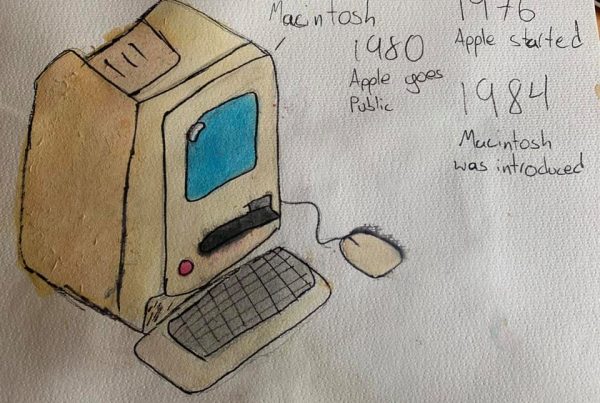 Macintosh
1980
Apple goes
Public
1976
Apple started
1984
Macintosh
was introduced